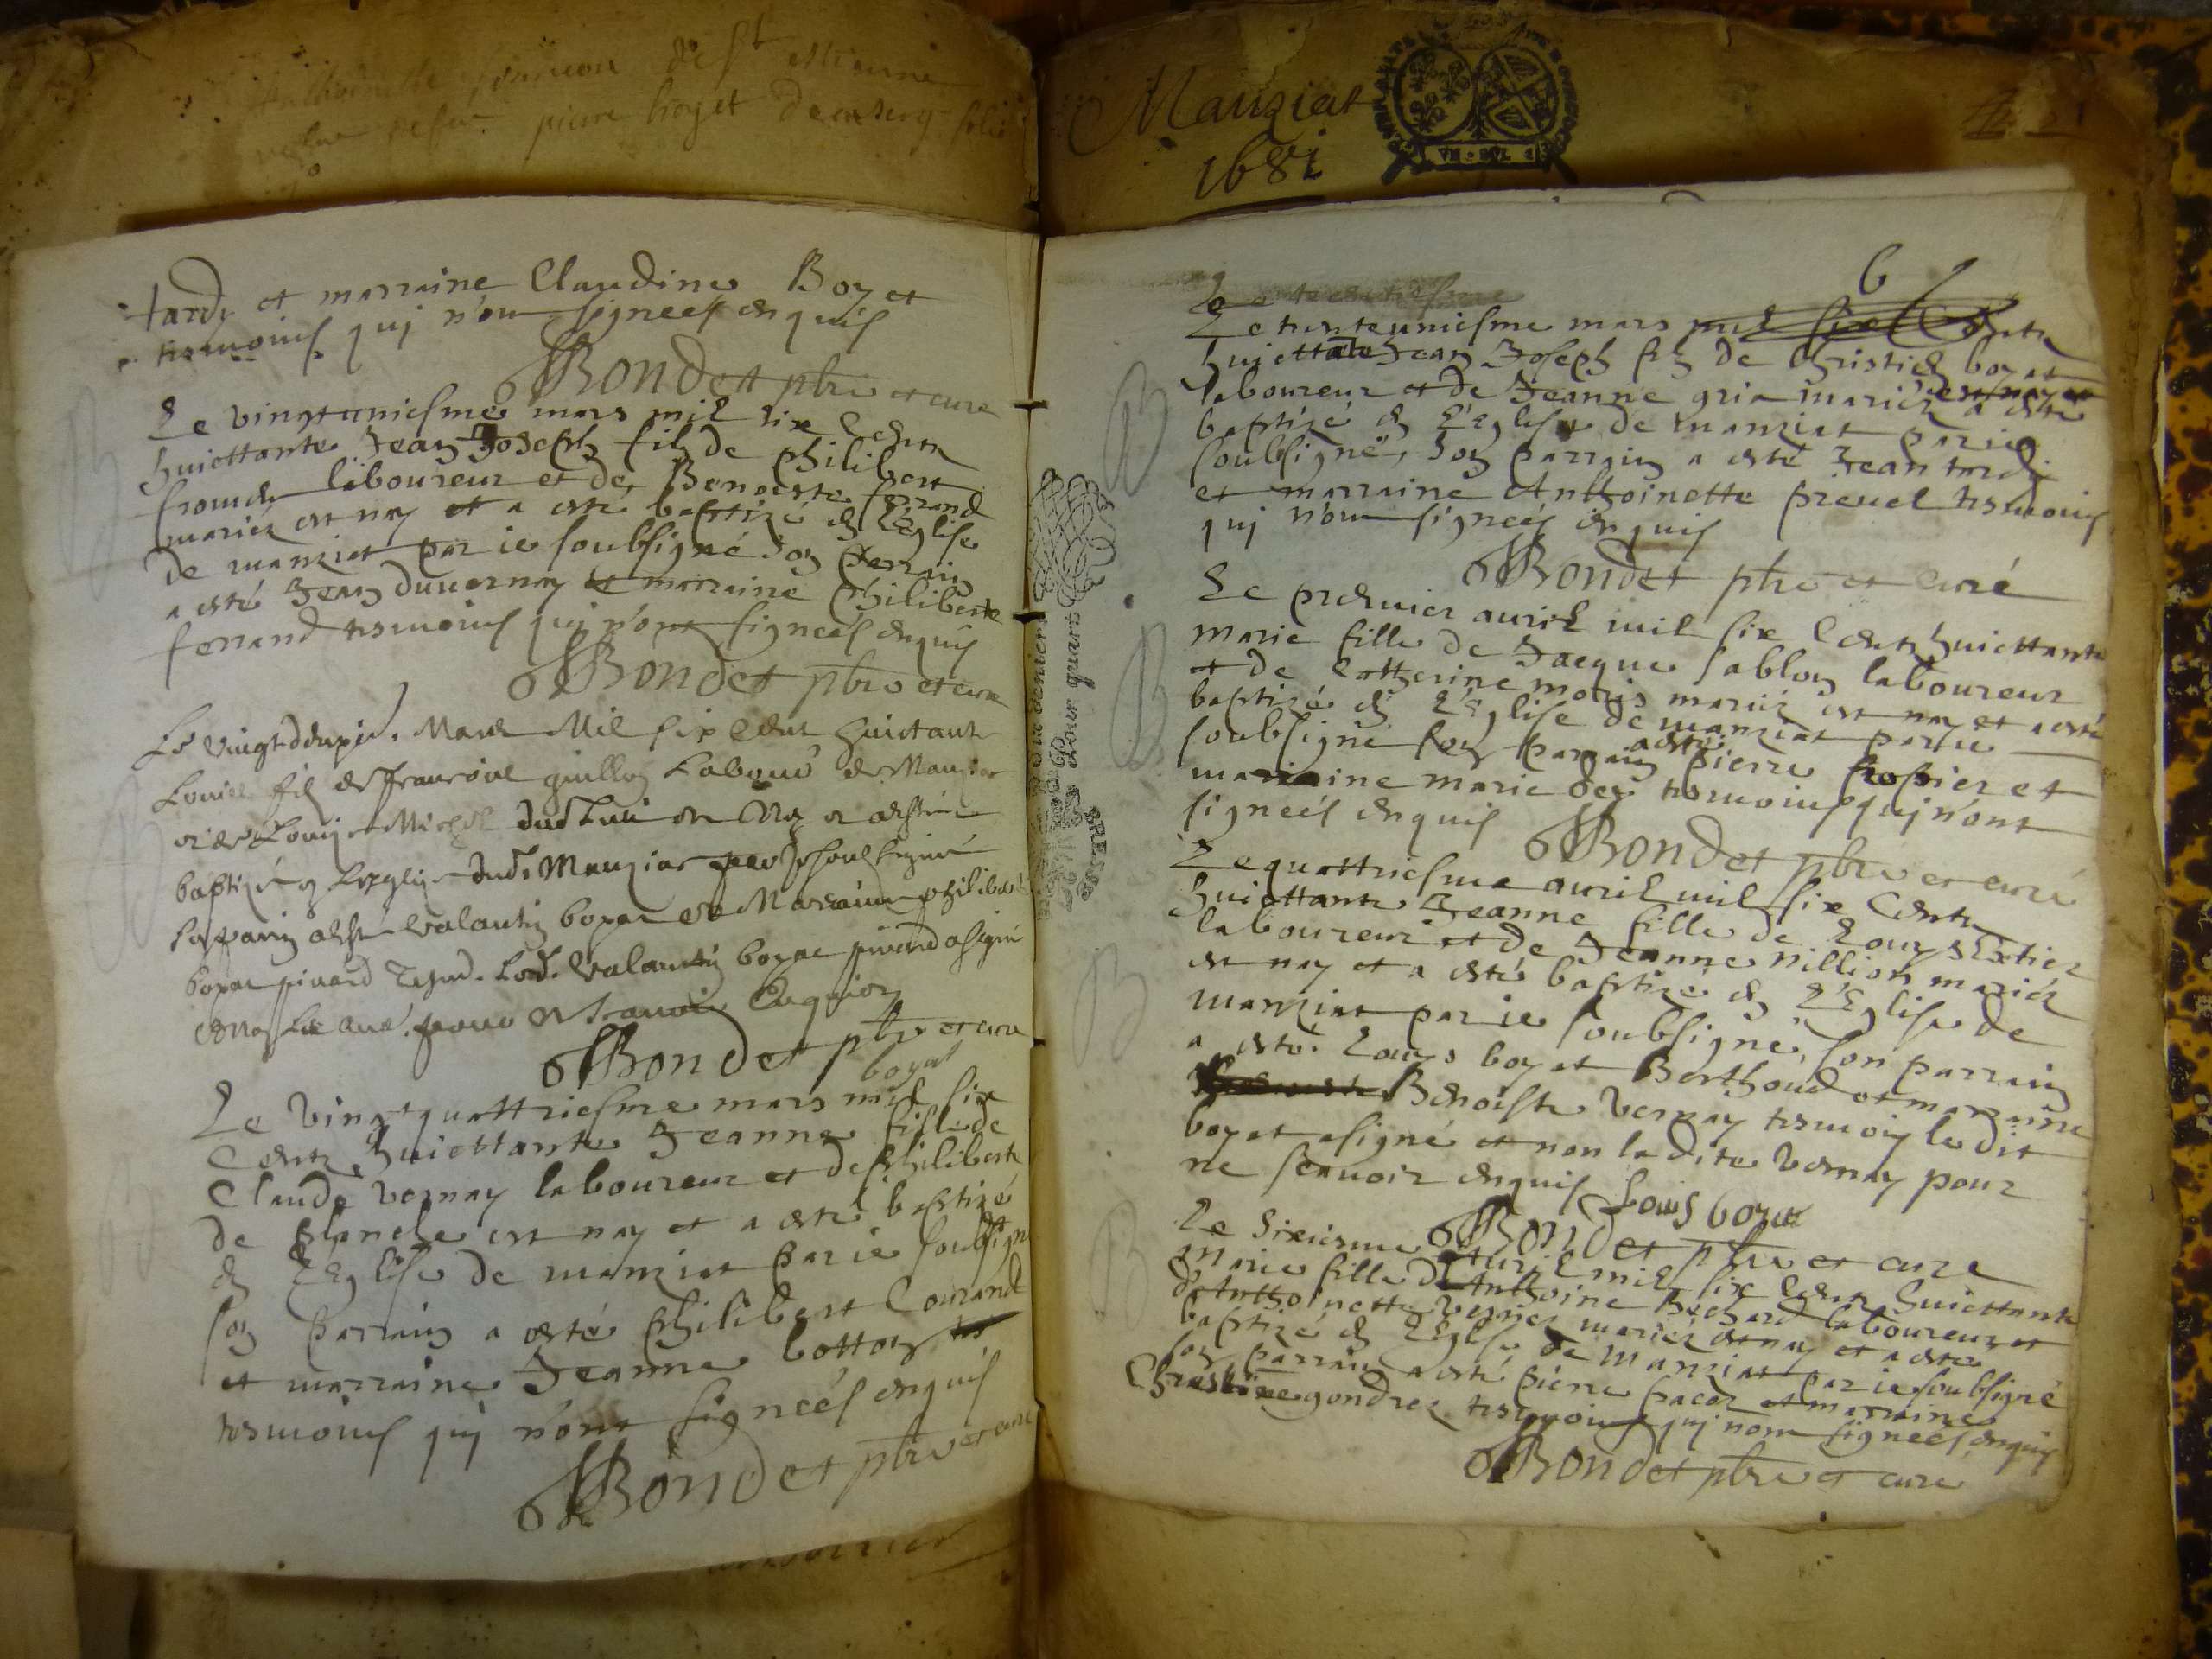 Anthoinette de St estienne
pierre boyet
tardy et marraine Claudine Boyet
tesmoins quj n'ont signees enquis
Bondet ptre et cure
Le vingtuniesme mars mil six Cents
huicttante Jean Joseph filz de philibert
laboureur et de Benoiste ferrand
mariez est nay et a esté baptizé en L'Eglise
de manziat par ie soubsigné son parrain
a esté Jean duuernay et marraine philiberte
ferrand tesmoins quj n'ont signees enquis
Bondet ptre et cure
Le vingt deuxie. Mars Mil six Cent huictante
Louise fil de francoise guillon Laboure de Manziat
baptizé en Leglize dud. Manziat par Je soubsigné
valantin boyat et Marraine philiberte
boyat piuard Lod. valantin boyat piuard a signé
Bondet ptre et cure
boyat
Le vingtquattriesme mars mil six
Cents huicttante Jeanne fille de
Claude vernay laboureur et de philiberte
de planche est nay et a esté baptizé
en L'Eglise de manziat par ie soubsigné
son parrain a esté philibert Courand
et marraine Jeanne botton
tesmoins quj n'ont signeés enquis
Bondet ptre et cure
Manziat
1681
6
Le trenteuniesme mars mil six Cents
huicttante Jean Joseph filz de Christien boyat
laboureur et de Jeanne gria mariez est nay et a esté
baptizé en L'Eglise de manziat par ie
soubsigné, son parrain a esté Jean tardy
et marraine Anthoinette preuel tesmoins
quj n'ont signeés enquis
Bondet ptre et curé
Le premier auril mil six Cents huicttante
marie fille de Jacque sablon laboureur
et de Catherine morin mariez est nay et a esté
baptizé en L'Eglise de manziat par ie
soubsigné son parrain a esté pierre et
marraine marie tesmoins quj n'ont
signeés enquis
Bondet ptre et curé
Le quattriesme auril mil six Cents
huicttante Jeanne fille de Louys
laboureur et de Jeanne nillion mariez
est nay et a esté baptizé en L'Eglise de
manziat par ie soubsigné, son parrain
a esté Louys boyat Berthoud et marraine
Benoiste vernay tesmoin le dit
boyat a signé et non la dite vernay pour
ne scauoir enquis
Louis boyat
Bondet ptre et cure
Le sixiesme auril mil six Cents huicttante
marie fille d'Anthoine Bichard laboureur et
d'Anthoinette mariez est nay et a esté
baptizé en L'Eglise de manziat par ie soubsigné
son parrain a esté pierre pacor et marraine
Christine gondrez tesmoins quj n'ont signeés enquis
Bondet ptre et cure
Six deniers
Pour quart
BRESSE